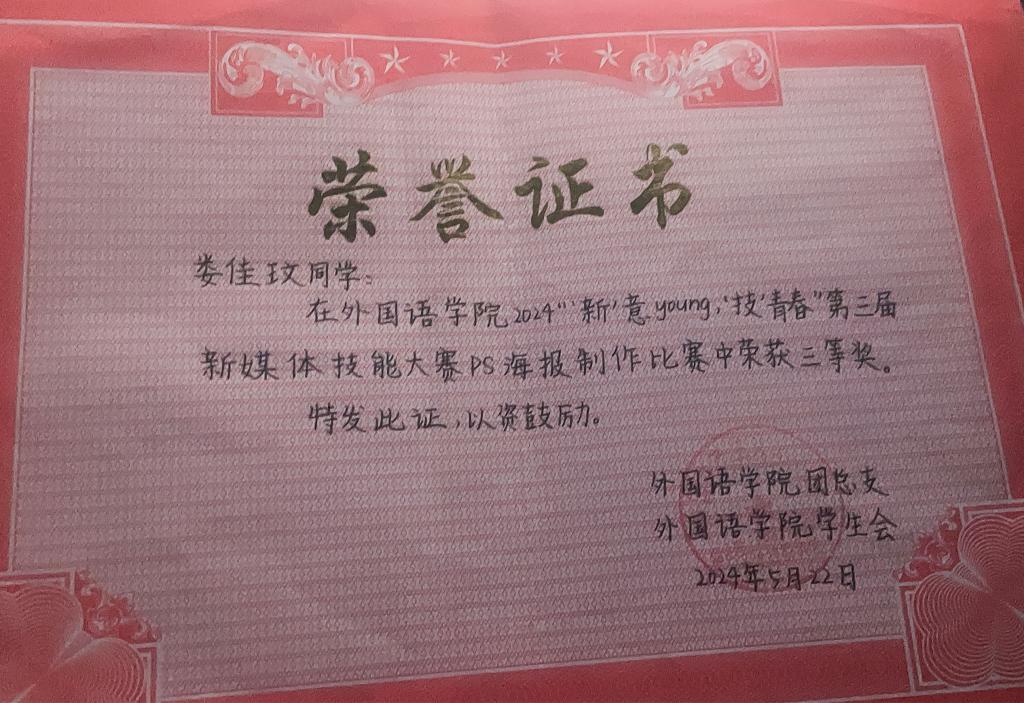 荣誉证书
娄佳玟同学：
在外国语学院2024“‘新’意young，‘技’青春”第三届
新媒体技能大赛PS海报制作比赛中荣获三等奖。
特发此证，以资鼓励。
外国语学院团总支
外国语学院学生会
2024年5月22日